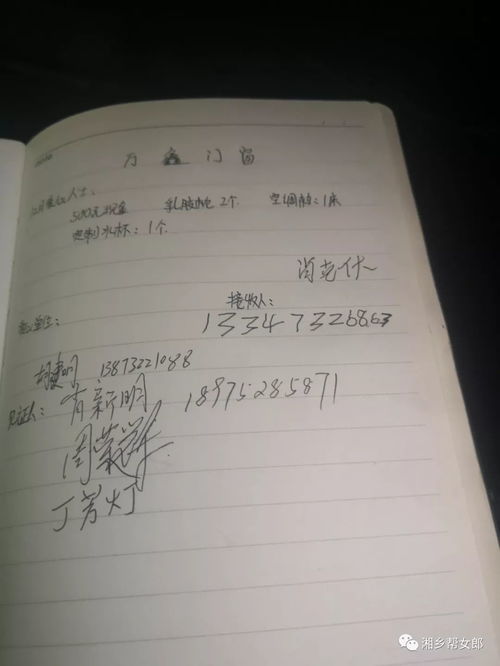 万鑫门窗
500元现金 乳胶枕2个 空调被:1床
定制水杯:1个
接收人:
13347326863
单位:
13873221088
见证人: 肖新明 18975285871
周荣
丁芳灯
湘乡帮女郎